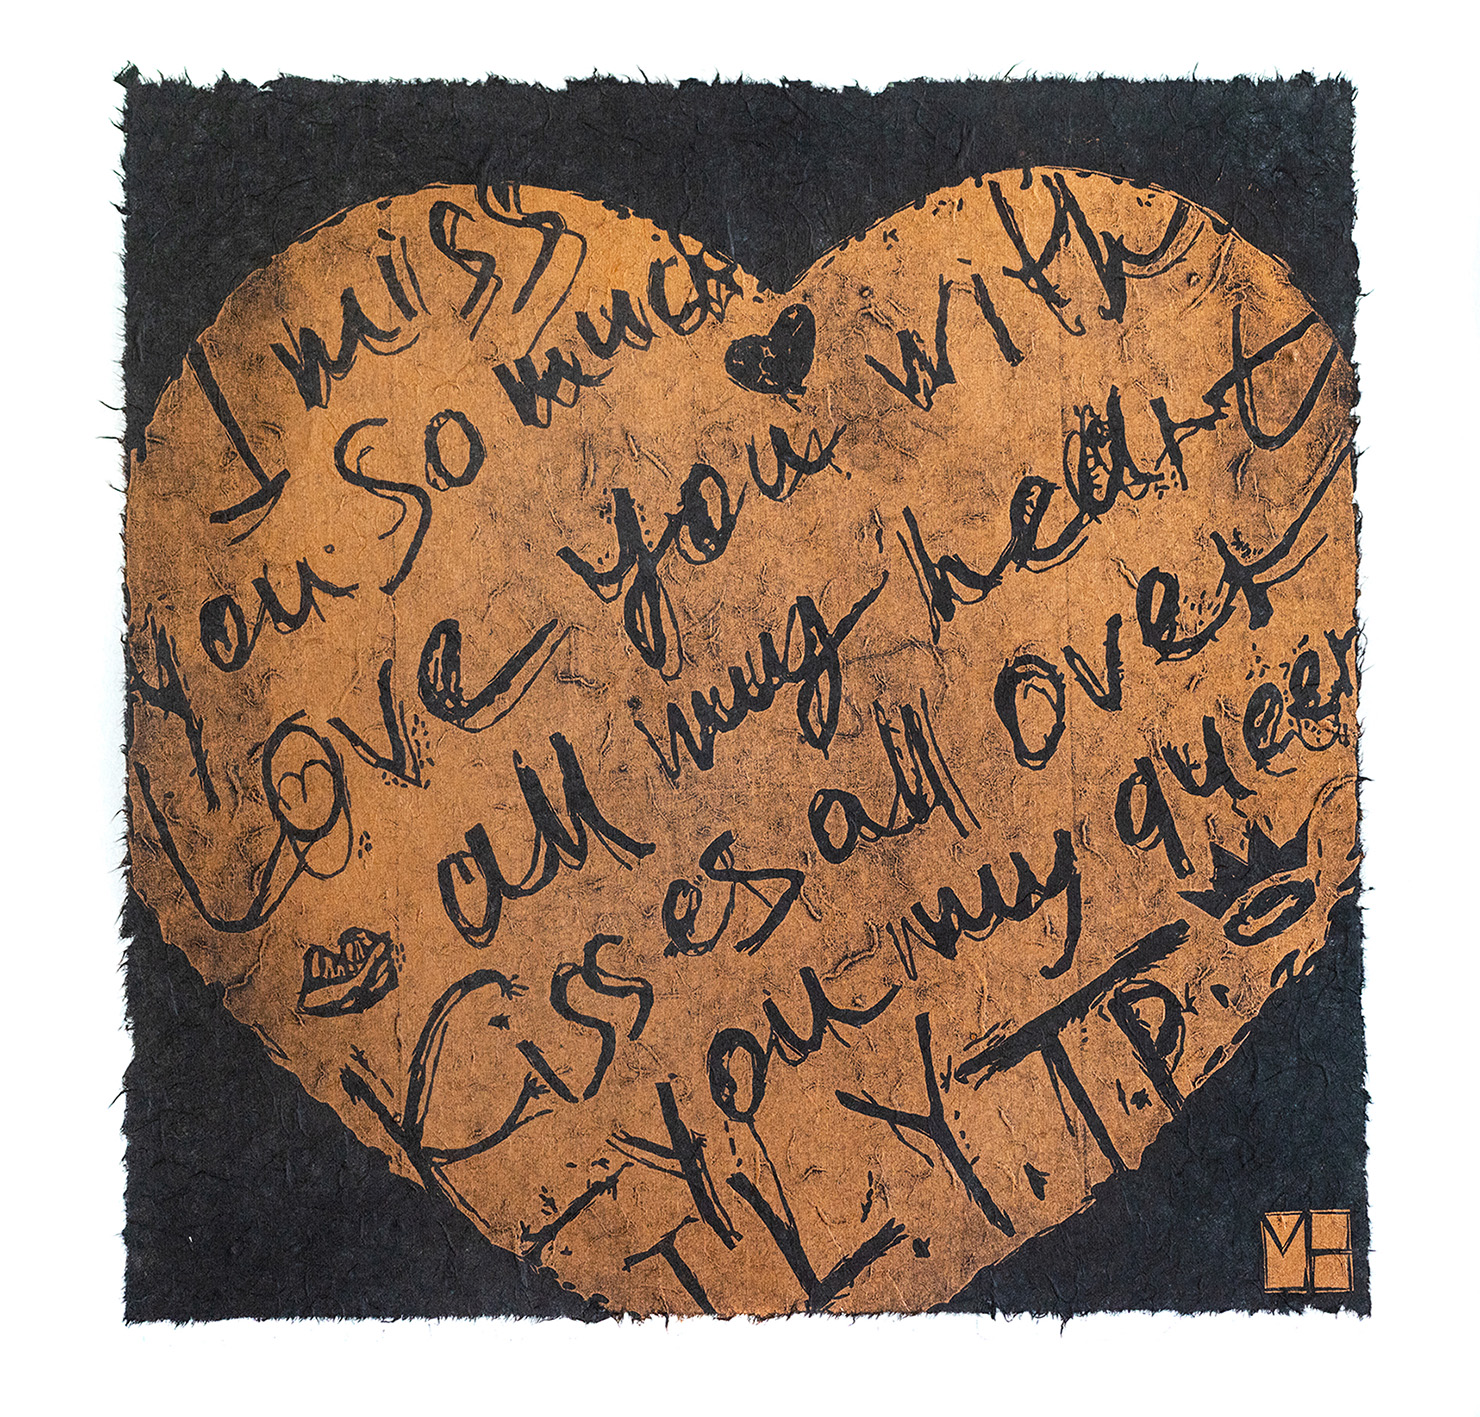 I miss
You so much
Love you with
all my heart
Kisses all over
You my queen
L.Y.T.P.